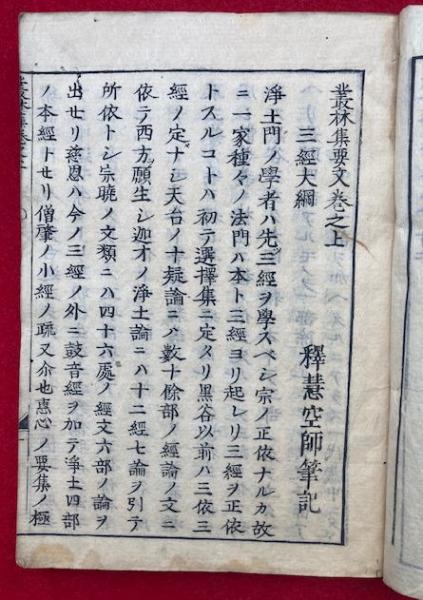 叢林集要文卷之上
釋慧空師筆記
三經大綱
淨土門ノ學者ハ先三經ヲ學スベシ宗ノ正依ナルカ故
ニ一家種々ノ法門ハ本ト三經ヨリ起レリ三經ヲ正依
トスルコトハ初テ選擇集ニ定メリ黒谷以前ハ三依三
經ノ定ナシ天台ノ十疑論ニハ數十餘部ノ經論ノ文ニ
依テ西方願生シ迦才ノ淨土論ニハ十二經七論ヲ引テ
所依トシ宗曉ノ文類ニハ四十六處ノ經文六部ノ論ヲ
出セリ慈恩ハ今ノ三經ノ外ニ鼓音經ヲ加テ淨土四部
ノ本經トセリ僧肇ノ小經ノ疏又介也惠心ノ要集ノ極